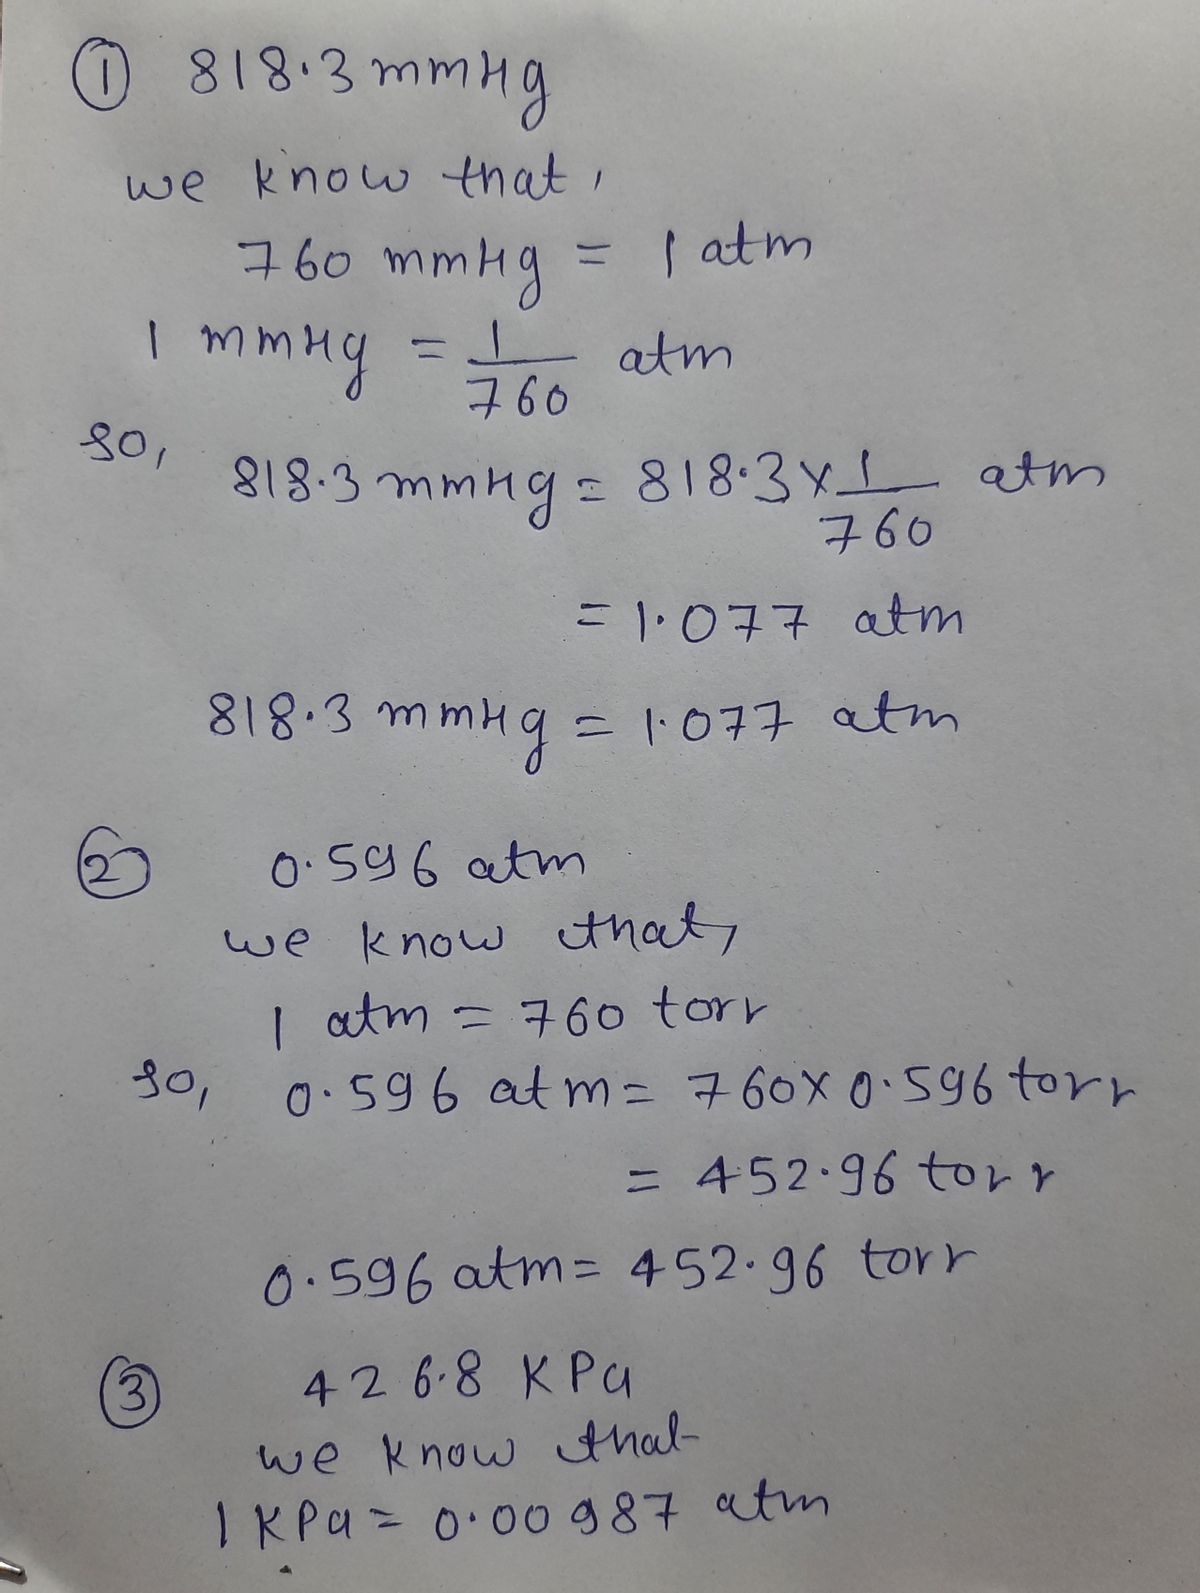 ① 818.3 mmHg
we know that,
760 mmHg = 1 atm
1 mmHg = 1/760 atm
so,
818.3 mmHg = 818.3 × 1/760 atm
= 1.077 atm
818.3 mmHg = 1.077 atm
② 0.596 atm
we know that,
1 atm = 760 torr
so, 0.596 atm = 760 × 0.596 torr
= 452.96 torr
0.596 atm = 452.96 torr
③ 426.8 KPa
we know that
1 KPa = 0.00987 atm